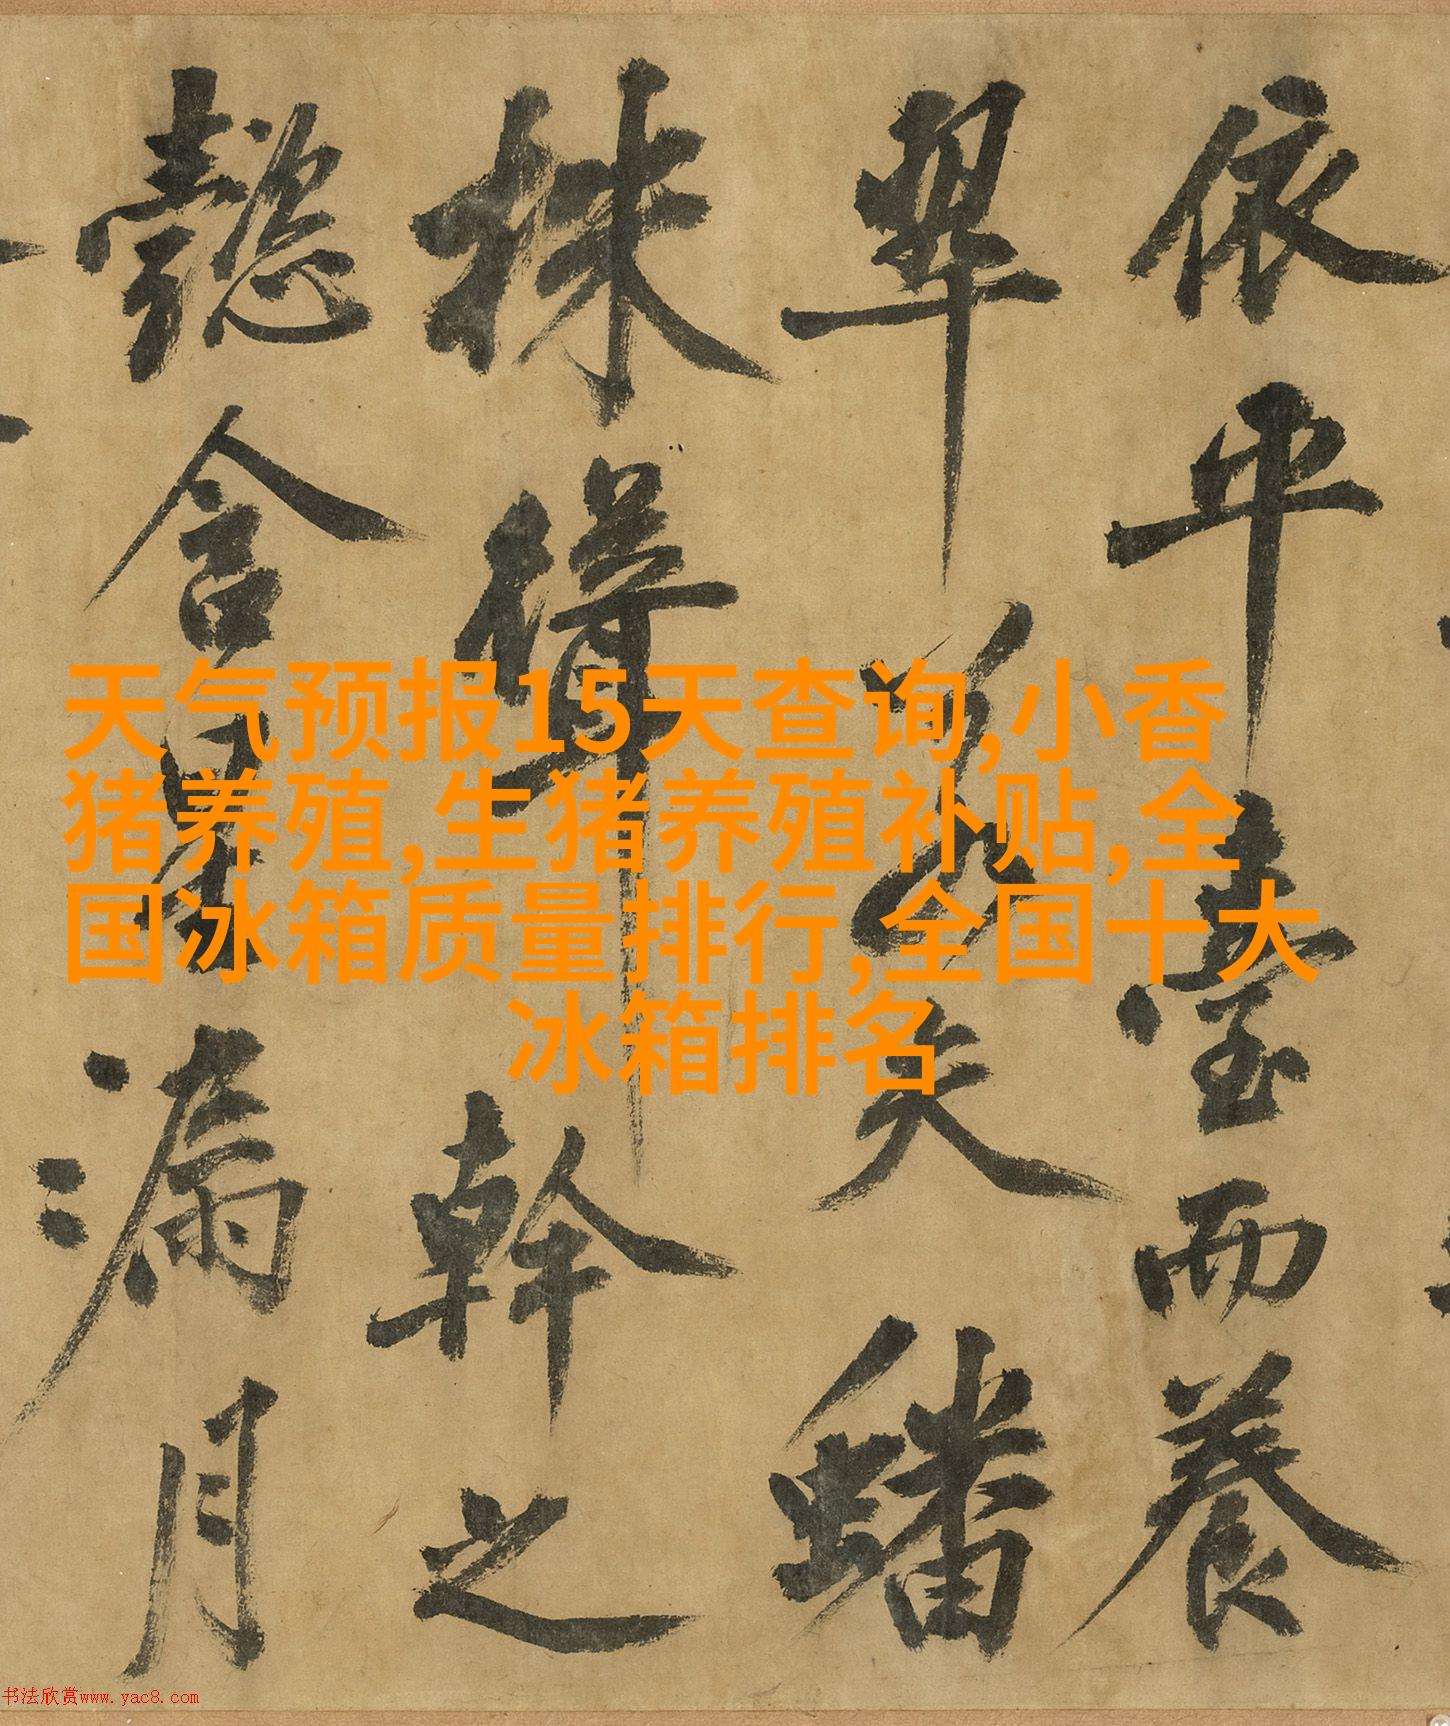 依平臺而養
翠若夫蟠
株聳幹之
懿含星漏月
天气预报15天查询,小香
猪养殖,生猪养殖补贴,全
国冰箱质量排行,全国十大
冰箱排名
书法欣赏www.yac8.com